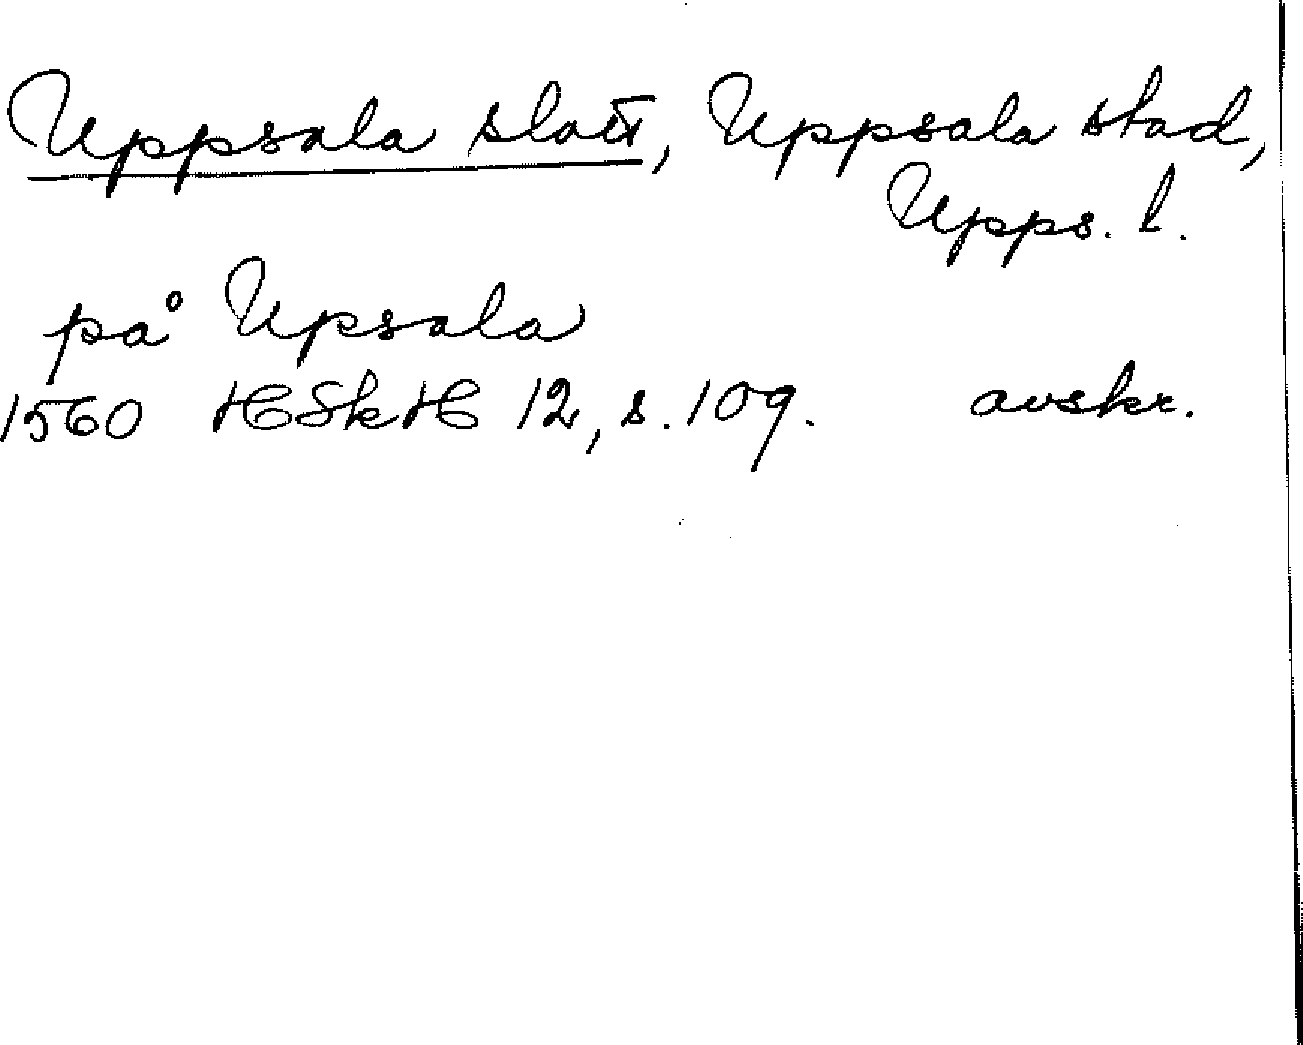 Uppsala slott, Uppsala stad,
Upps. l.
på Upsala
1560 HSkH 12, s. 109. avskr.